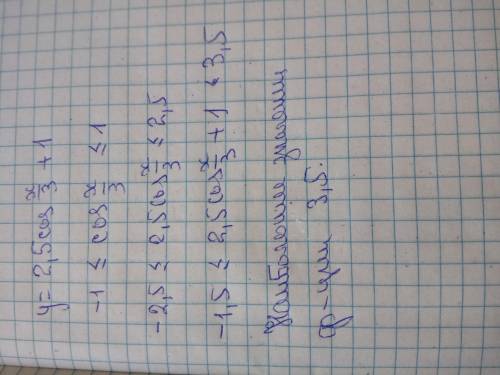 y = 2,5cos x/3 + 1
-1 ≤ cos x/3 ≤ 1
-2,5 ≤ 2,5cos x/3 ≤ 2,5
-1,5 ≤ 2,5cos x/3 + 1 ≤ 3,5
Наибольшее значение
ф-ции 3,5.